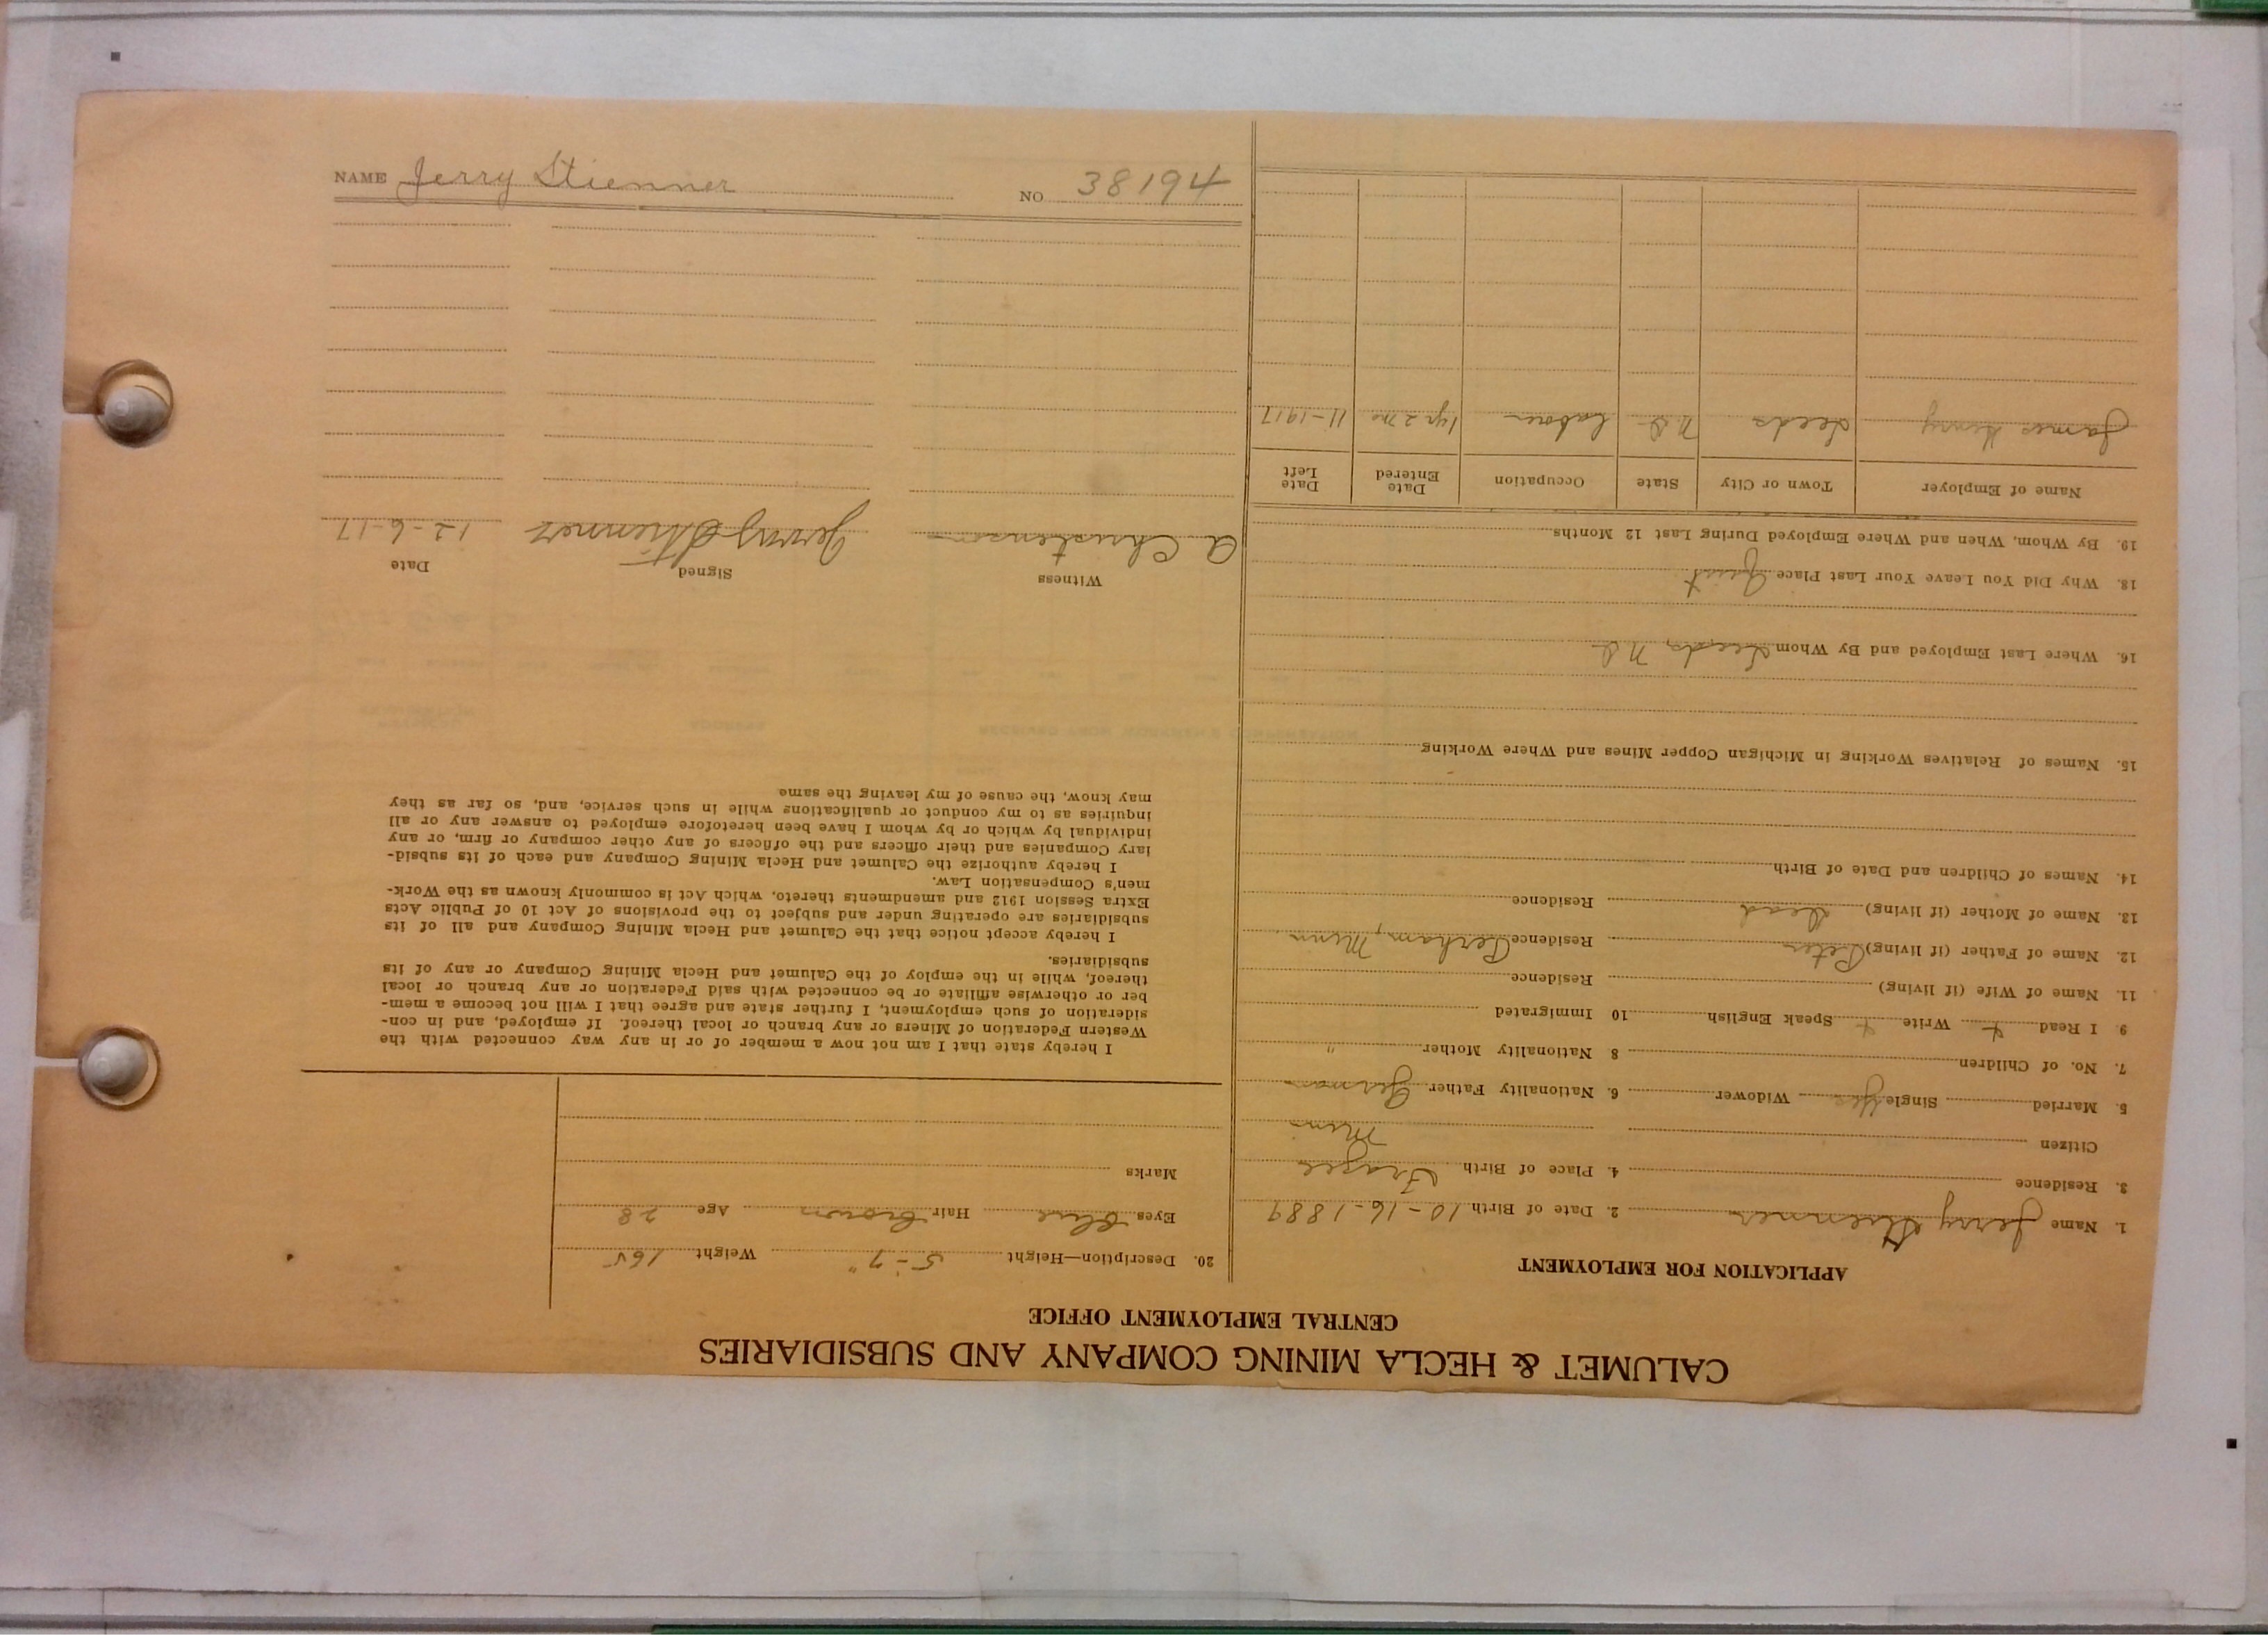 CALUMET & HECLA MINING COMPANY AND SUBSIDIARIES
CENTRAL EMPLOYMENT OFFICE
APPLICATION FOR EMPLOYMENT
1. Name Jerry Stienner 2. Date of Birth 10-16-1889
3. Residence 4. Place of Birth Frazee
Citizen Minn
5. Married Single Yes Widower 6. Nationality Father German
7. No. of Children 8 Nationality Mother "
9. I Read + Write + Speak English 10 Immigrated
11. Name of Wife (if living) Residence
12. Name of Father (if living) Peter Residence Perham, Minn
13. Name of Mother (if living) Dead Residence
14. Names of Children and Date of Birth
15. Names of Relatives Working in Michigan Copper Mines and Where Working
16. Where Last Employed and By Whom Leeds, N D
18. Why Did You Leave Your Last Place Quit
19. By Whom, When and Where Employed During Last 12 Months
Name of Employer Town or City State Occupation Date Entered Date Left
James Henry Leeds N D Laborer 1 yr 2 mo 11-1917
20. Description—Height 5-7" Weight 165
Eyes Blue Hair Brown Age 28
Marks
I hereby state that I am not now a member of or in any way connected with the
Western Federation of Miners or any branch or local thereof. If employed, and in con-
sideration of such employment, I further state and agree that I will not become a mem-
ber or otherwise affiliate or be connected with said Federation or any branch or local
thereof, while in the employ of the Calumet and Hecla Mining Company or any of its
subsidiaries.
I hereby accept notice that the Calumet and Hecla Mining Company and all of its
subsidiaries are operating under and subject to the provisions of Act 10 of Public Acts
Extra Session 1912 and amendments thereto, which Act is commonly known as the Work-
men's Compensation Law.
I hereby authorize the Calumet and Hecla Mining Company and each of its subsid-
iary Companies and their officers and the officers of any other company or firm, or any
individual by which or by whom I have been heretofore employed to answer any or all
inquiries as to my conduct or qualifications while in such service, and, so far as they
may know, the cause of my leaving the same
Witness Signed Date
A Christenson Jerry Stienner 12-6-17
NAME Jerry Stienner NO 38194